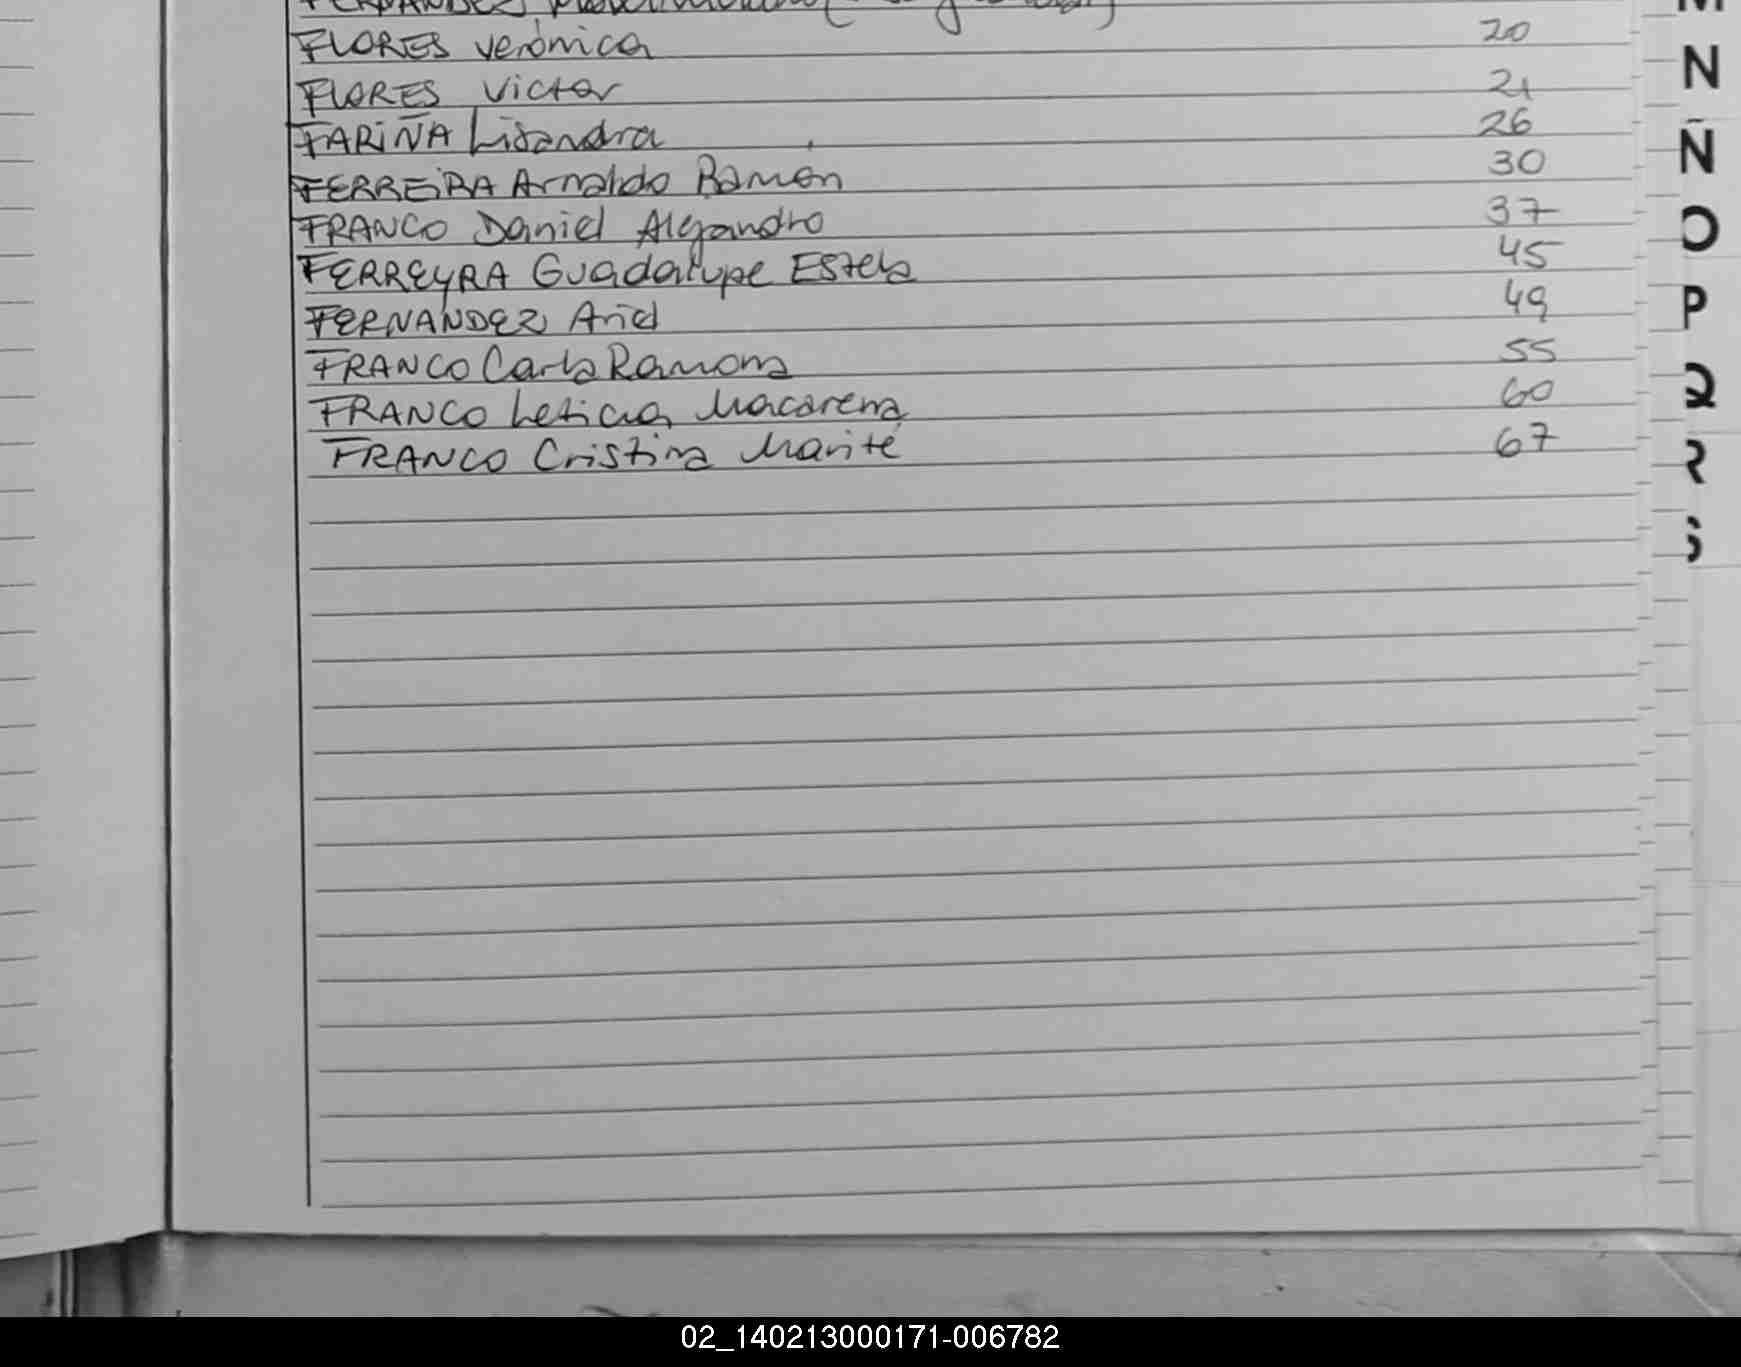 FERNANDEZ
FLORES verónica 20
FLORES Victor 21
FARIÑA Lisandra 26
FERREIRA Arnaldo Ramón 30
FRANCO Daniel Alejandro 37
FERREYRA Guadalupe Estela 45
FERNANDEZ Ariel 49
FRANCO Carla Ramona 55
FRANCO Leticia Macarena 60
FRANCO Cristina Marité 67
M
N
Ñ
O
P
Q
R
S
02_140213000171-006782